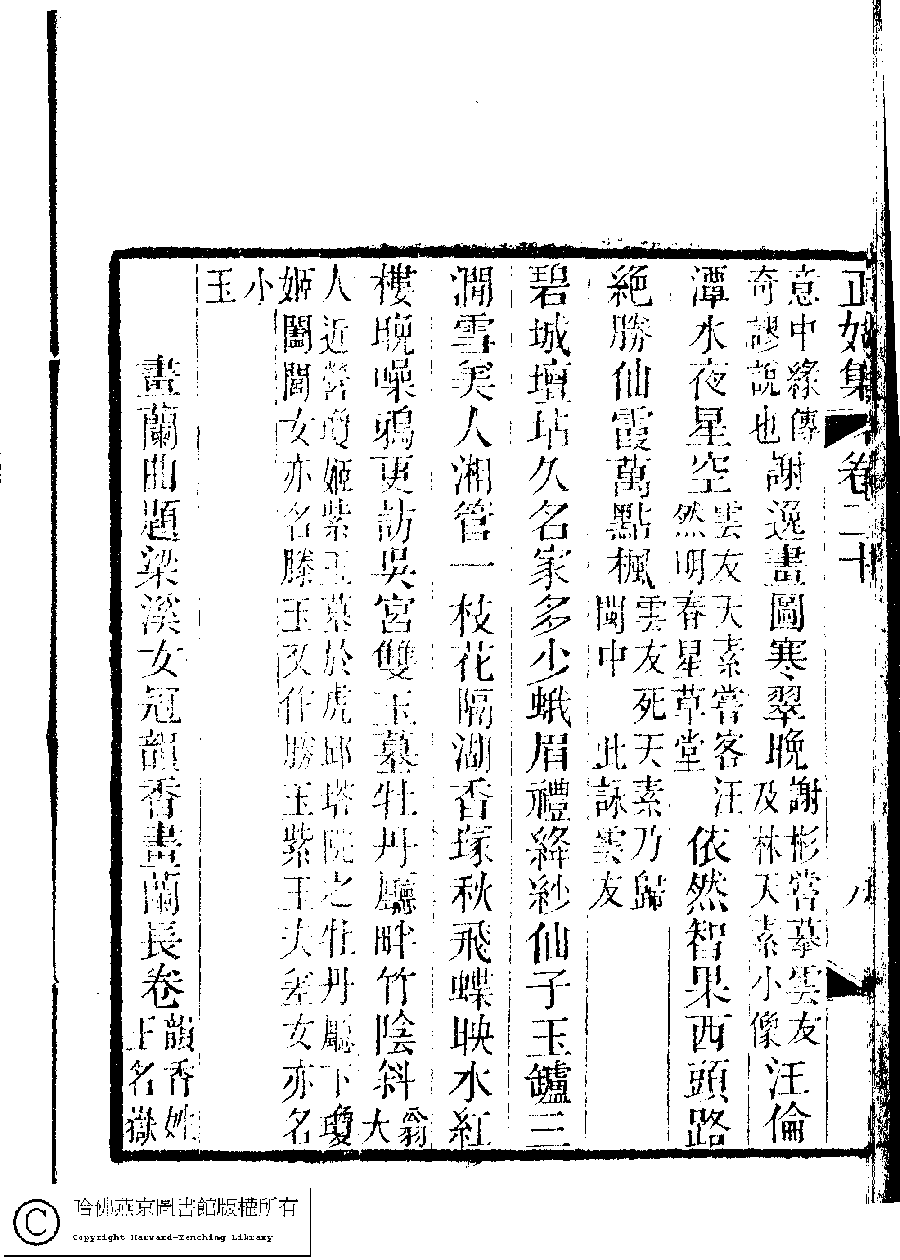 正始集 卷二十 八
意中緣傳奇謬說也謝逸畫圖寒翠晚謝彬嘗摹雲友及林天素小像汪倫
潭水夜星空雲友天素嘗客汪然明春星草堂依然智果西頭路
絶勝仙霞萬點楓雲友死天素乃歸閩中此詠雲友
碧城壇坫久名家多少蛾眉禮絳紗仙子玉鑪三
澗雪美人湘管一枝花隔湖香塚秋飛蝶映水紅
樓晚噪鴉更訪吳宮雙玉墓牡丹廳畔竹陰斜翁大
人近營瓊姬紫玉墓於虎邱塔院之牡丹廳下瓊
姬闔閭女亦名滕玉又作勝玉紫玉夫差女亦名
小
玉
畫蘭曲題梁溪女冠韻香畫蘭長卷韻香姓王名嶽
哈佛燕京圖書館版權所有
Copyright Harvard-Yenching Library